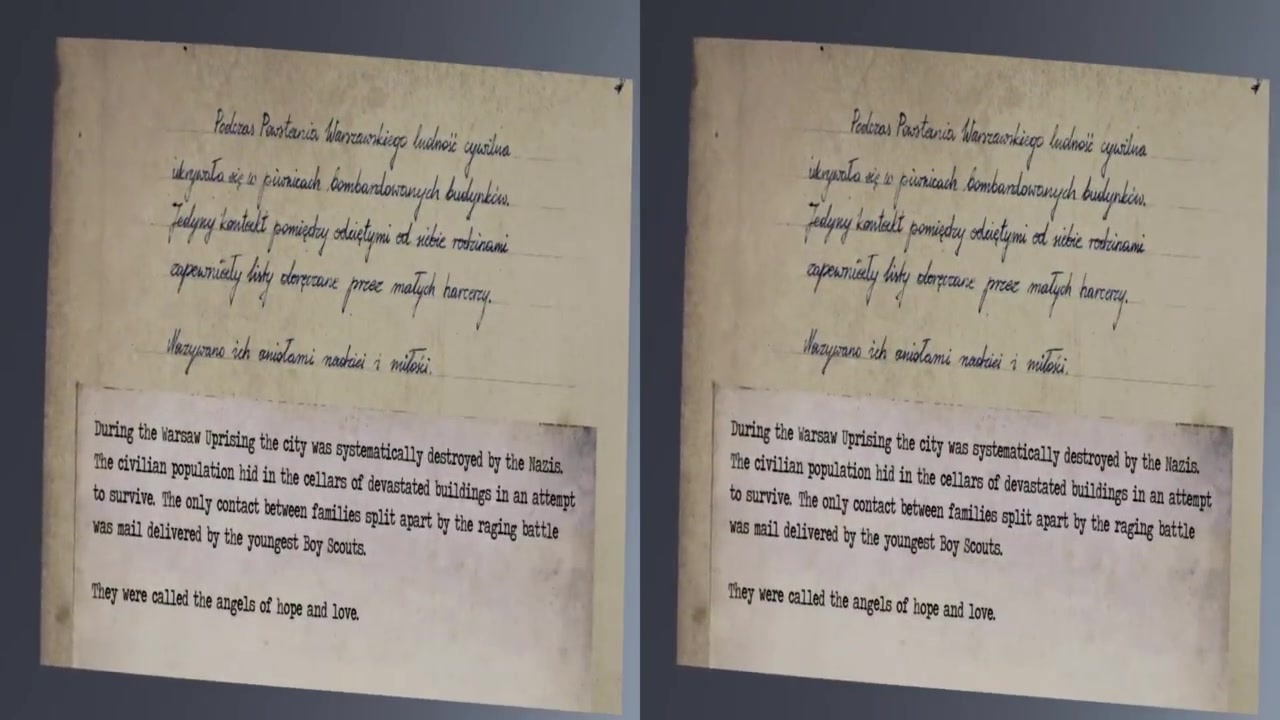 Podczas Powstania Warszawskiego ludność cywilna
ukrywała się w piwnicach bombardowanych budynków.
Jedyny kontakt pomiędzy odciętymi od siebie rodzinami
zapewniały listy doręczane przez małych harcerzy.
Nazywano ich aniołami nadziei i miłości.
During the Warsaw Uprising the city was systematically destroyed by the Nazis.
The civilian population hid in the cellars of devastated buildings in an attempt
to survive. The only contact between families split apart by the raging battle
was mail delivered by the youngest Boy Scouts.
They were called the angels of hope and love.
Podczas Powstania Warszawskiego ludność cywilna
ukrywała się w piwnicach bombardowanych budynków.
Jedyny kontakt pomiędzy odciętymi od siebie rodzinami
zapewniały listy doręczane przez małych harcerzy.
Nazywano ich aniołami nadziei i miłości.
During the Warsaw Uprising the city was systematically destroyed by the Nazis.
The civilian population hid in the cellars of devastated buildings in an attempt
to survive. The only contact between families split apart by the raging battle
was mail delivered by the youngest Boy Scouts.
They were called the angels of hope and love.